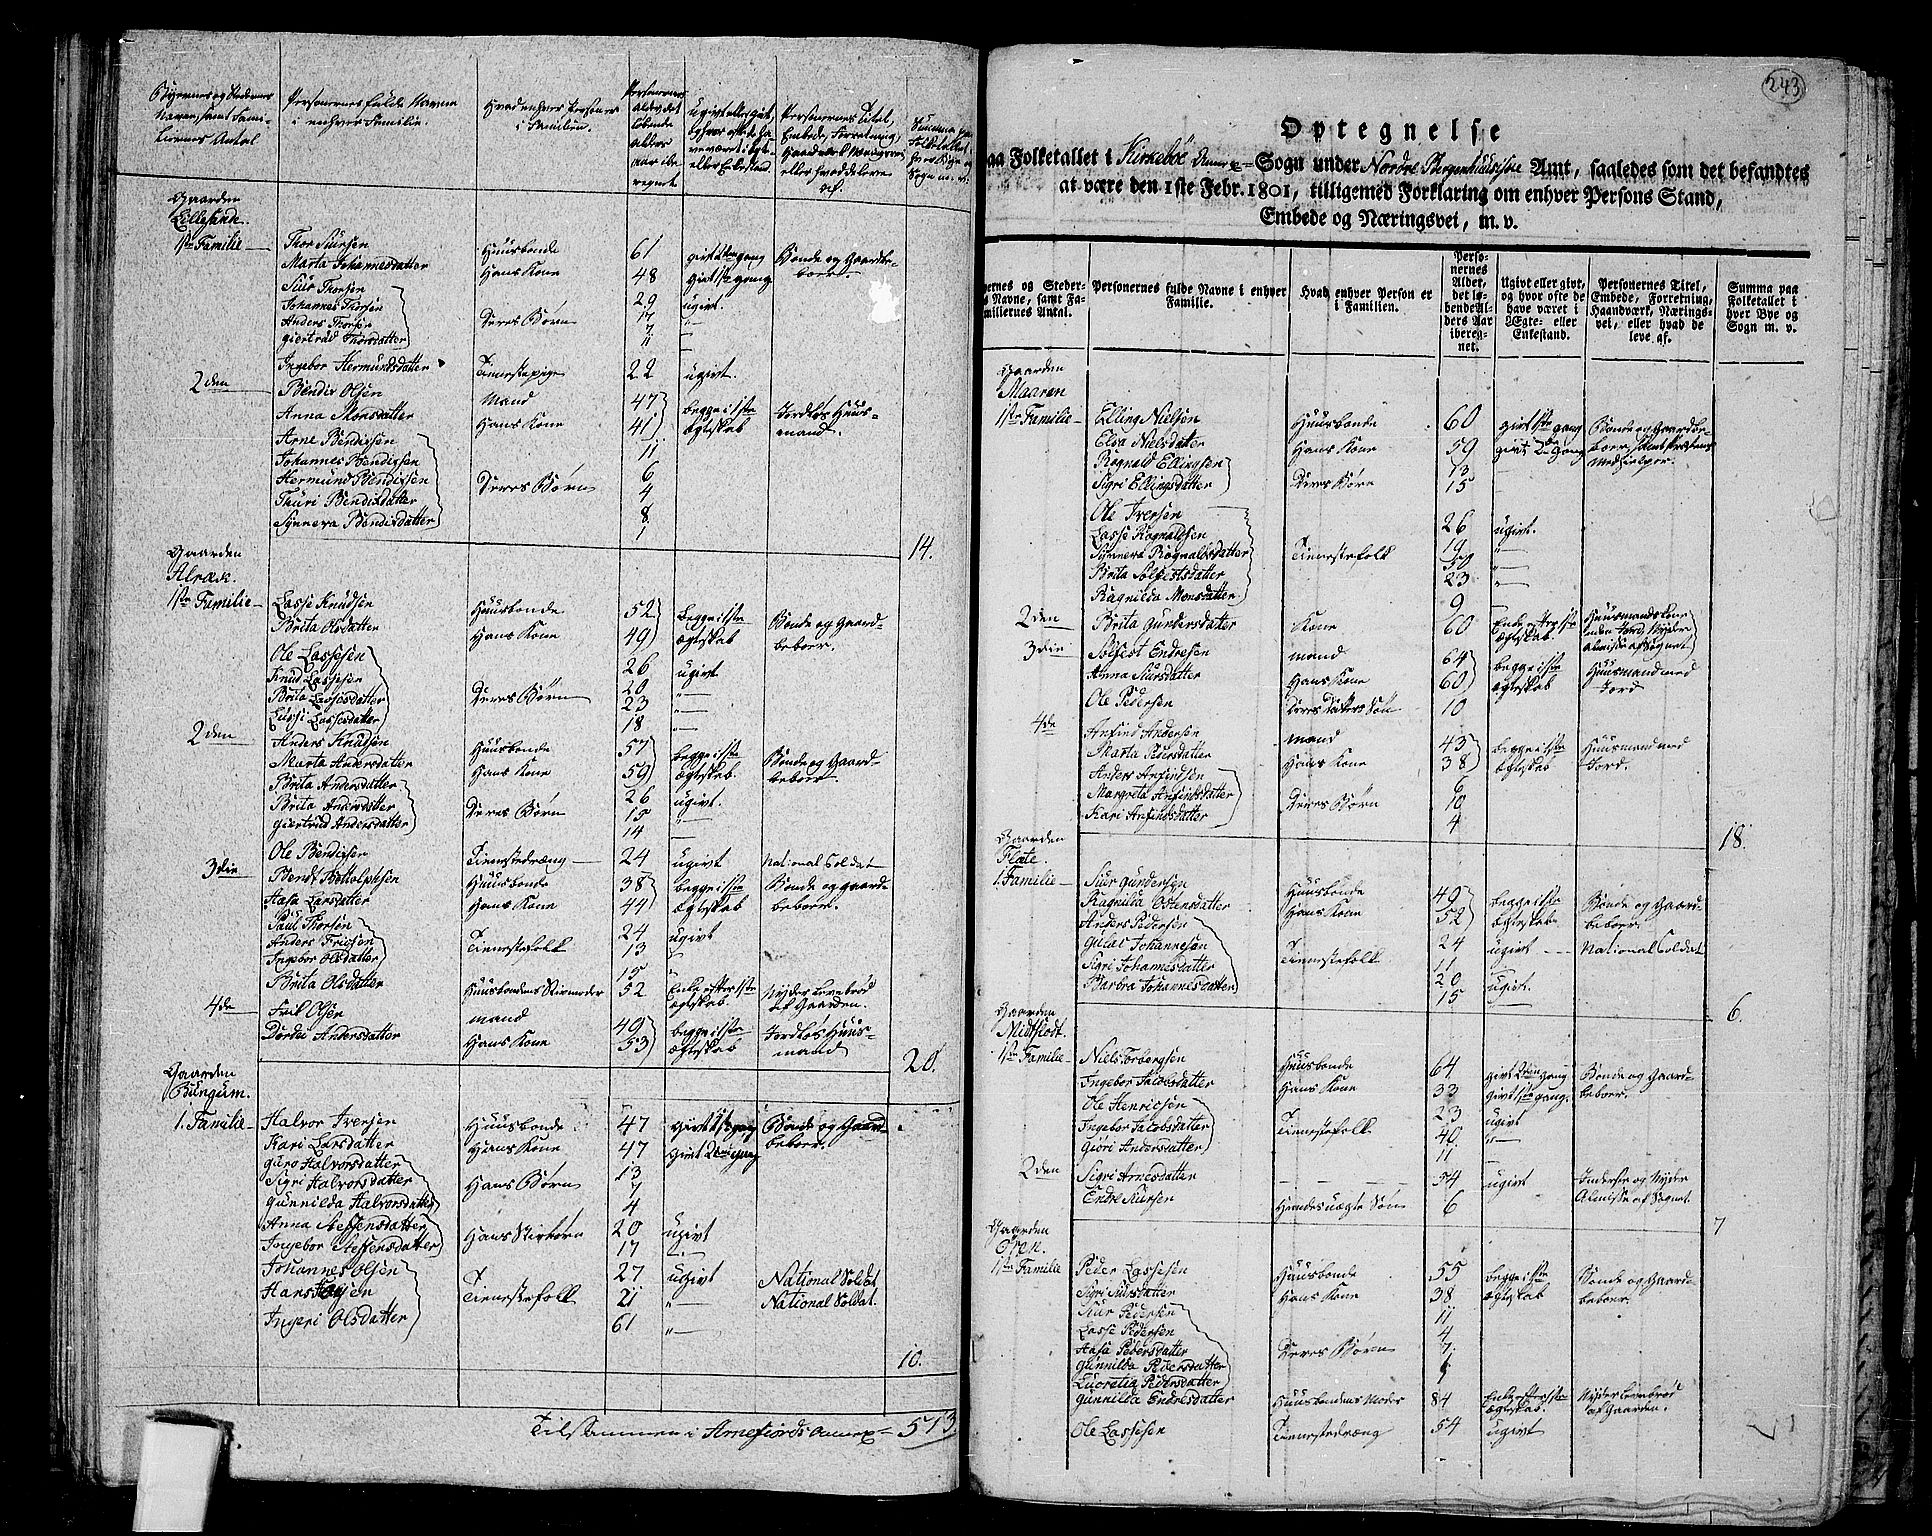 Byernes og Stedernes Navne, samt Familiernes Antal
Personernes fulde Navne i enhver Familie.
Hvad enhver Person er i Familien.
Personernes Alder, det løbende Alders Aar iberegnet
ugivt eller givt, og hvor ofte de have været i Ægte- eller Enkestand.
Personernes Titel, Embede, Forretning, Haandværk, Næringsvei eller hvad de leve af.
Summa paa Folketallet i hver Bye og Sogn m. v.
Gaarden
Lillesand.
1ste Familie
Thor Siursen Huusbonde 61 givt 2den gang Bonde og Gaardbeboer.
Marta Johannesdatter Hans Kone 48 givt 1ste gang
Siur Thorsen 29 ugivt.
Johannes Thorsen 17 "
Anders Thorsen Deres Børn 7
Giertrud Thorsdatter 11
Ingebor Hermundsdatter Tienestepige 22 ugivt
2den Bendix Olsen Mand 47 begge i 1ste Ægteskab Jordløs Huusmand.
Anna Monsdatter Hans Kone 41
Arne Bendixsen 11
Johannes Bendixsen 6
Hermund Bendixsen Deres Børn 4
Thuri Bendixdatter 8
Synneva Bendixdatter 1
14.
Gaarden
Alræk.
1ste Familie
Lasse Knudsen Huusbonde 52 begge i 1ste Ægteskab Bonde og Gaardbeboer.
Brita Olsdatter Hans Kone 49
Ole Lassesen 26 ugivt
Knud Lassesen 20 "
Brita Lassesdatter Deres Børn 23 "
Lussi Lassesdatter 18 "
2den Anders Knudsen Huusbonde 57 begge i 1ste Ægteskab. Bonde og Gaardbeboer
Marta Andersdatter Hans Kone 59
Brita Andersdatter 26 ugivt.
Brita Andersdatter Deres Børn 15 "
Giertrud Andersdatter 14
Ole Bendixsen Tienestedræng 24 ugivt National Soldat
3die Bendt Bottolphsen Huusbonde 38 begge i 1ste Ægteskab Bonde og Gaardbeboer.
Aasa Larsdatter Hans Kone 44
Paul Thorsen 24 ugivt
Anders Fricsen Tienestefolk 13
Ingebor Olsdatter 15
Brita Olsdatter Huusbondens Stivmoder 52 Enke efter 1ste Ægteskab Nyder Levebrød af Gaarden.
4de Erik Olsen Mand 49 begge i 1ste Ægteskab Jordløs Huusmand
Dordu Andersdatter Hans Kone 53
20.
Gaarden
Bungum.
1. Familie
Halvor Iversen Huusbonde 47 givt 1ste gang Bonde og Gaardbeboer.
Kari Larsdatter Hans Kone 47 givt 2den gang
Guro Halvorsdatter 13
Sigri Halvorsdatter Hans Børn 7
Gunnilda Halvorsdatter 4
Anna Steffensdatter Hans Stivbørn 20 ugivt
Ingebor Steffensdatter 17 "
Johannes Olsen 27 ugivt National Soldat
Hans Tienestefolk 21 " National Soldat.
Ingeri Olsdatter 61 "
10.
Tilsammen i Arnefiords Annex 573
243
Optegnelse
paa Folketallet i Kirkeboe Annex-Sogn under Nordre Bergenhuussiske Amt, saaledes som det befandtes
at være den 1ste Febr. 1801, tilligemed Forklaring om enhver Persons Stand,
Embede og Næringsvei, m. v.
gernes og Steders Navne, samt Familiernes Antal.
Personernes fulde Navne i enhver Familie.
Hvad enhver Person er i Familien.
Personernes Alder, det løbende Alders Aar iberegnet.
Ugivt eller givt, og hvor ofte de have været i Ægte- eller Enkestand.
Personernes Titel, Embede, Forretning, Haandværk, Næringsvei, eller hvad de leve af.
Summa paa Folketallet i hver Bye og Sogn m. v.
Gaarden
Maaren
1ste Familie
Elling Nielsen Huusbonde 60 givt 1ste gang Bonde og Gaardbeboer, Medhielper.
Elsa Nielsdatter Hans Kone 59 givt 2de Gang
Rognald Ellingsen 13
Sigri Ellingsdatter Deres Børn 15
Ole Iversen 26 ugivt.
Lasse Rognaldsen 19 "
Sunneva Rognaldsdatter Tienestefolk 50 "
Brita Solfestsdatter 23 "
Ragnilda Monsdatter 9
2den Brita Gundersdatter Kone 60 Enke efter 1ste Ægteskab Huusmandskone uden Jord, Nyder Almisse af Sognet
3die Solfest Endresen Mand 64 begge i 1ste Ægteskab Huusmand med Jord
Anna Siursdatter Hans Kone 60
Ole Pedersen Deres Datters Søn 10
4de Anfind Andersen Mand 43 begge i 1ste Ægteskab Huusmand med Jord.
Marta Siursdatter Hans Kone 38
Anders Anfindsen 6
Margreta Anfindsdatter Deres Børn 10
Kari Anfindsdatter 4
18.
Gaarden
Flate.
1. Familie
Siur Gundersen Huusbonde 49 begge i 1ste Ægteskab Bonde og Gaardbeboer
Ragnilda Ostensdatter Hans Kone 52
Anders Pedersen 24 ugivt National Soldat
Gulav Johannesen Tienestefolk 11
Sigri Johannesdatter 20 ugivt.
Barbra Johannesdatter 15
6.
Gaarden
Nidtflodt.
1ste Familie
Niels Torbergsen Huusbonde 64. givt 2den gang Bonde og Gaardbeboer.
Ingebor Jacobsdatter Hans Kone 33 givt 1ste gang.
Ole Henricsen 23 ugivt
Ingebor Jacobsdatter Tienestefolk 40 "
Giori Andersdatter 11
2den Sigri Arnesdatter 54 ugivt Inderste og Nyder Almisse af Sognet.
Endre Siursen Hendes uægte Søn 6
7
Gaarden
Oren.
1ste Familie
Peder Lassesen Huusbonde 55 begge i 1ste Ægteskab Bonde og Gaardbeboer.
Sigri Siursdatter Hans Kone 38
Siur Pedersen 11
Lasse Pedersen 4
Aasa Pedersdatter Deres Børn 7
Gunnilda Pedersdatter
Lucretia Pedersdatter
Gunnilda Endresdatter Huusbondens Moder 84 Enke efter 1ste Ægteskab. Nyder Levebrød af Gaarden.
Ole Lassesen Tienestedræng 54 ugivt